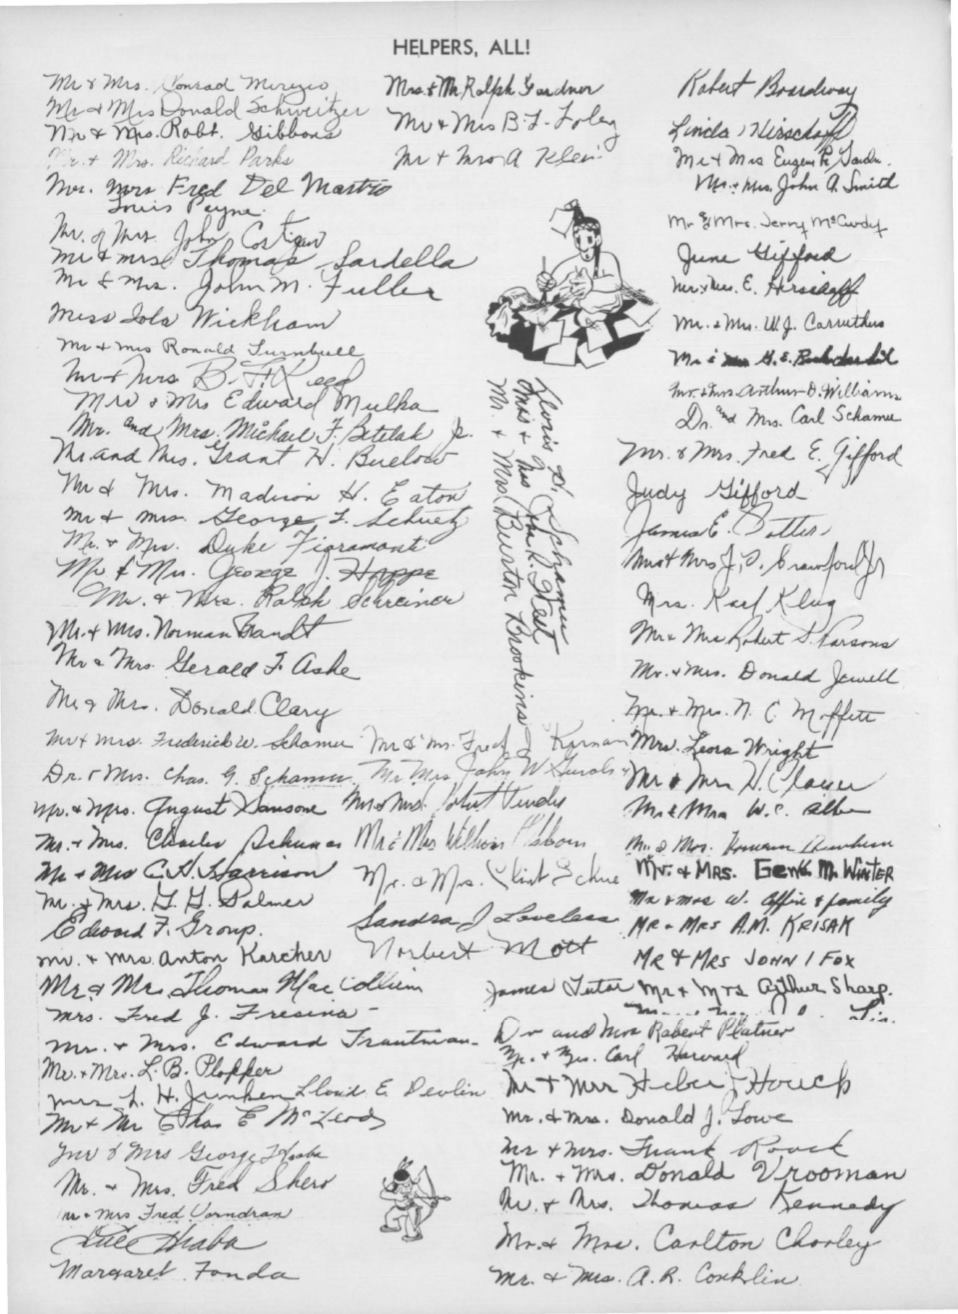 HELPERS, ALL!
Mr & Mrs. Conrad
Mr & Mrs Donald Schweitzer
Mr & Mrs. Robt. Gibbons
Mr. & Mrs. Richard Parks
Mr. Mrs Fred Del Mastro
Louis Payne.
Mr. & Mrs. John
Mr & Mrs Thomas Sardella
Mr & Mrs. John M. Fuller
Miss Iola Wickham
Mr & Mrs Ronald Turnbull
Mr & Mrs B. F. Reed
Mr & Mrs Edward Mulka
Mr. and Mrs. Michael F. Betelak Jr.
Mr. and Mrs. Grant H. Buelow
Mr & Mrs. Madison H. Eaton
Mr & Mrs. George L. Schuetz
Mr. & Mrs. Duke Figramonti
Mr & Mrs. George J. Hoppe
Mr. & Mrs. Ralph Schreiner
Mr. & Mrs. Norman Brandt
Mr & Mrs. Gerald F. Ashe
Mr & Mrs. Donald Clary
Mr & Mrs. Frederick W. Schamu
Dr. & Mrs. Chas. G. Schamu
Mr. & Mrs. August Sansone
Mr. & Mrs. Charles
Mr & Mrs C. H. Harrison
Mr. & Mrs. G. G. Palmer
Edward F. Group.
Mr. & Mrs. Anton Karcher
Mr. & Mrs. Thomas Mac Collum
Mrs. Fred J. Fresina
Mr. & Mrs. Edward Trautman
Mr. & Mrs. L. B. Plopper
Mrs L. H. Junken Lloyd E. Devlin
Mr & Mr Chas E McLeod
Mr & Mrs George
Mr. & Mrs. Fred Shero
Mr & Mrs Fred Vorndran
Margaret Fonda
Mrs. & Mr. Ralph Gardner
Mr & Mrs B. L. Foley
Mr & Mrs A Klein
Lewis H. Schamu
Mr. & Mrs Burton Brookins
Mr & Mrs. Fred J Kernan
Mr Mrs John W
Mr & Mrs. Robert
Mr & Mrs William Osborn
Mr. & Mrs. Clint
Sandra J Loveless
Norbert Mott
James Tutor
Robert Broadway
Linda Hirschoff
Mr & Mrs Eugene R.
Mr. & Mrs. John A. Smith
Mr & Mrs. Jerry McCurdy
June Gifford
Mr. & Mrs. E. Hirschoff
Mr. & Mrs. W. J. Carruthers
Mr. & Mrs. Arthur D. Williams
Dr. and Mrs. Carl Schamu
Mr. & Mrs. Fred E. Gifford
Judy Gifford
James E. Potter
Mr & Mrs J. D. Crawford Jr
Mrs. Karl Klug
Mr & Mrs Robert S. Parsons
Mr. & Mrs. Donald Jewell
Mr. & Mrs. N. C. Moffett
Mrs. Leora Wright
Mr & Mrs H.
Mr & Mrs W. C.
Mr. & Mrs.
Mr. & Mrs. Gene M. Winter
Mr & Mrs W. & family
Mr & Mrs A.M. Krisak
Mr & Mrs John I Fox
Mr & Mrs Arthur Sharp.
Dr and Mrs Robert Platner
Mr. & Mrs. Carl Harvard
Mr & Mrs Heber J Houck
Mr. & Mrs. Donald J. Lowe
Mr & Mrs. Frank Roach
Mr. & Mrs. Donald Vrooman
Mr. & Mrs. Thomas Kennedy
Mr. & Mrs. Carlton Chorley
Mr. & Mrs. A. R. Conklin